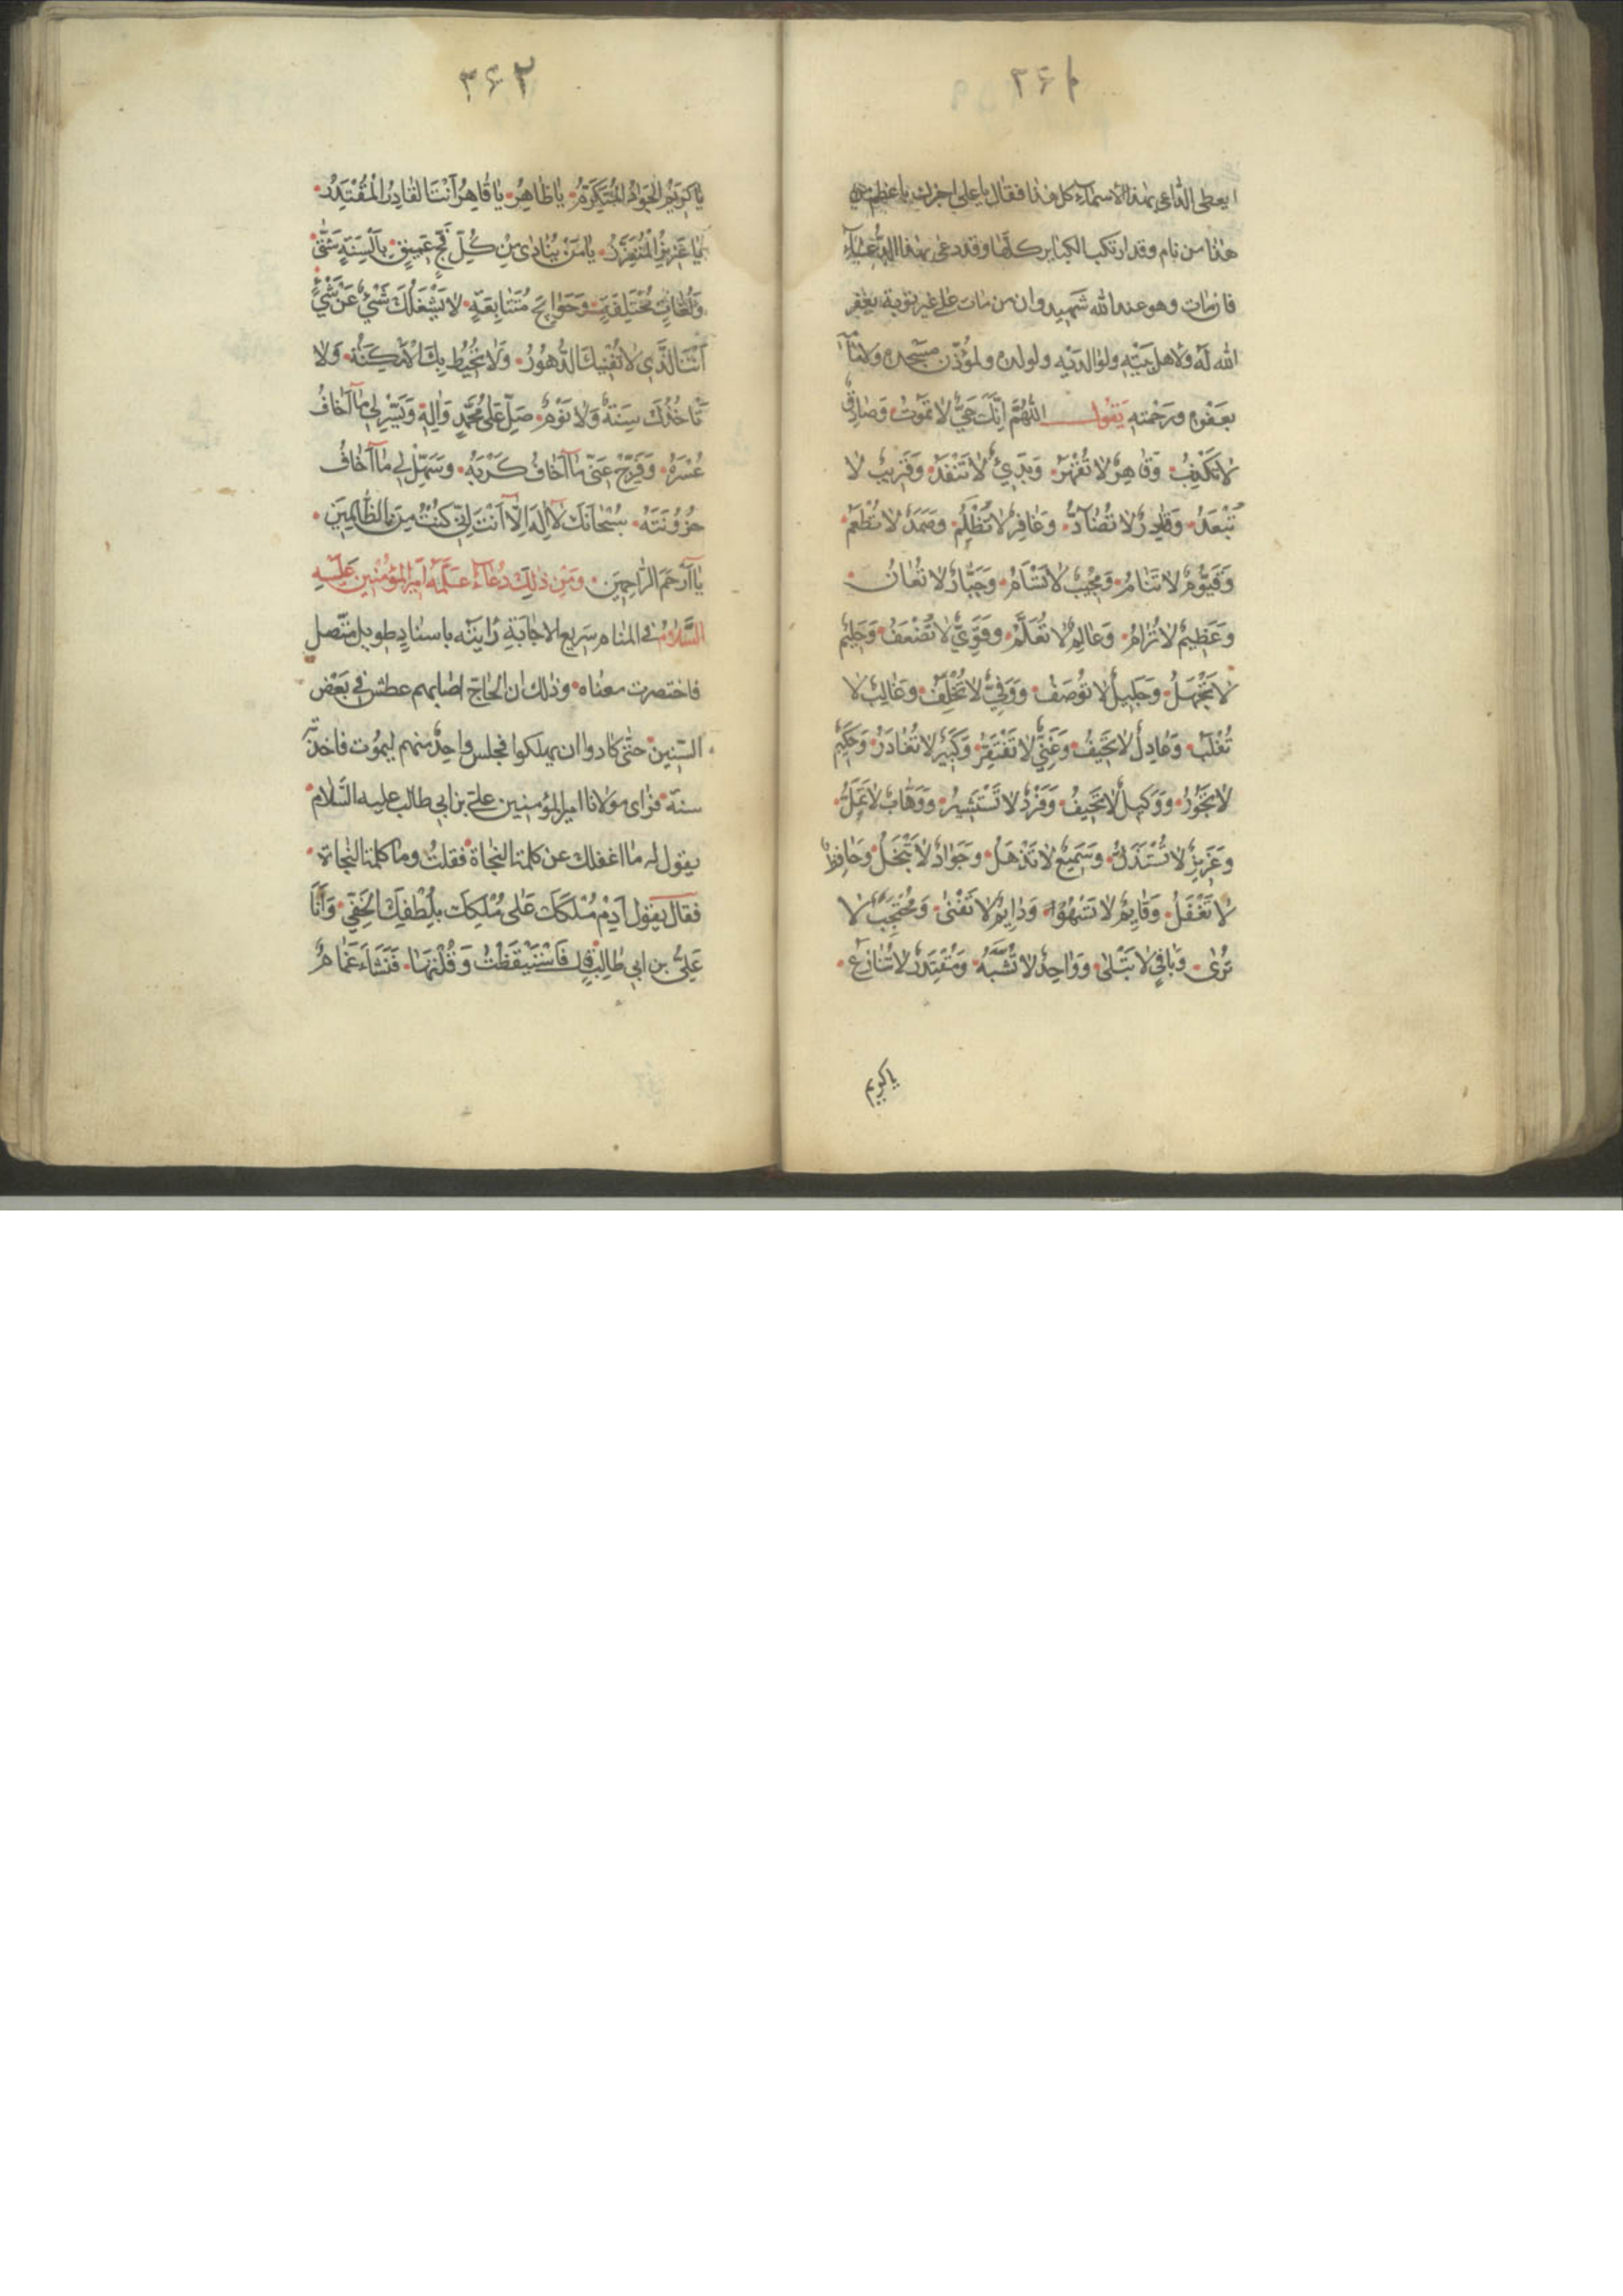 ۳۶۱
ایعطی الداعی بهذه الاسماء کل هذا فقال یا علی اخبرک باعظم من
هذا من نام وقد ارتکب الکبایر کلها وقد دعی بهذا الدعاء
فان مات وهو عند الله شهید وان من مات علی غیر توبة یغفر
الله له ولاهل بیته ولوالدیه ولولده ولمؤذن مسجده ولامامه
بعفوه ورحمته یقول اَللّٰهُمَّ اِنَّكَ حَيٌّ لا تَمُوتُ وَصَادِقٌ
لا تَكْذِبُ وَقَاهِرٌ لا تُقْهَرُ وَبَدِيءٌ لا تَنْفَدُ وَقَرِيبٌ لا
تَبْعَدُ وَقَادِرٌ لا تُضَادُّ وَغَافِرٌ لا تَظْلِمُ وَصَمَدٌ لا تُطْعَمُ
وَقَيُّومٌ لا تَنَامُ وَمُجِيبٌ لا تَسْأَمُ وَجَبَّارٌ لا تُعَانُ
وَعَظِيمٌ لا تُرَامُ وَعَالِمٌ لا تُعَلَّمُ وَقَوِيٌّ لا تُضْعَفُ وَحَلِيمٌ
لا تَجْهَلُ وَجَلِيلٌ لا تُوصَفُ وَوَفِيٌّ لا تُخْلِفُ وَغَالِبٌ لا
تُغْلَبُ وَعَادِلٌ لا تَحِيفُ وَغَنِيٌّ لا تَفْتَقِرُ وَكَبِيرٌ لا تُغَادِرُ وَحَكِيمٌ
لا تَجُورُ وَوَكِيلٌ لا تَحِيفُ وَفَرْدٌ لا تَسْتَشِيرُ وَوَهَّابٌ لا تَمَلُّ
وَعَزِيزٌ لا تُسْتَذَلُّ وَسَمِيعٌ لا تَذْهَلُ وَجَوَادٌ لا تَبْخَلُ وَحَافِظٌ
لا تَغْفَلُ وَقَايِمٌ لا تَسْهُوا وَدَايِمٌ لا تَفْنىٰ وَمُحْتَجِبٌ لا
تُرىٰ وَبَاقِي لا تَبْلىٰ وَوَاحِدٌ لا تُشَبَّهُ وَمُقْتَدِرٌ لا تُنَازَعُ
یاکریم
۳۶۲
يَا كَرِيمُ الْجَوَادُ الْمُتَكَرِّمُ يَا ظَاهِرُ يَا قَاهِرُ اَنْتَ الْقَادِرُ الْمُقْتَدِرُ
يَا عَزِيزُ الْمُتَعَزِّزُ يَا مَنْ يُنَادىٰ مِنْ كُلِّ فَجٍّ عَمِيقٍ بِاَلْسِنَةٍ شَتّىٰ
وَلُغَاتٍ مُخْتَلِفَةٍ وَحَوَايِجَ مُتَتَابِعَةٍ لا يَشْغَلُكَ شَيْءٌ عَنْ شَيْءٍ
اَنْتَ الَّذِي لا تُفْنِيكَ الدُّهُورُ وَلا تُحِيطُ بِكَ الْاَمْكِنَةُ وَلا
تَاخُذُكَ سِنَةٌ وَلا نَوْمٌ صَلِّ عَلىٰ مُحَمَّدٍ وَالِهِ وَيَسِّرْ لِي مَا اَخَافُ
عُسْرَهُ وَفَرِّجْ عَنِّي مَا اَخَافُ كَرْبَهُ وَسَهِّلْ لِي مَا اَخَافُ
حُزُونَتَهُ سُبْحَانَكَ لا اِلٰهَ اِلَّا اَنْتَ اِنِّي كُنْتُ مِنَ الظَّالِمِينَ
يَا اَرْحَمَ الرَّاحِمِينَ وَمِنْ ذٰلِكَ دُعَاءٌ عَلَّمَهُ اَمِيرُ الْمُؤْمِنِينَ عَلَيْهِ
السَّلَامُ في المنام سَرِيع الاجابةِ رَايته باسنادٍ طويل متّصل
فاختصرت معناه وذلك ان الحاجّ اصابهم عطش في بَعْض
السّنين حتّى كادوا ان يهلكوا فجلس واحِدٌ منهم ليموت فاخذته
سنة فرأى مولانا امير المؤمنين علي بن ابي طالب عليه السَّلام
يقول له ما اغفلك عن كلمة النجاة فقلتُ وما كلمة النجاة
فقال يقول اَدِمْ مُلْكَكَ عَلىٰ مُلْكِكَ بِلُطْفِكَ الْخَفِيِّ وَاَنَا
عَلِيُّ بن ابي طالِب قال فَاسْتَيْقَظْتُ وَقُلْتُهَا فَنَشَاءَ غَمَامٌ